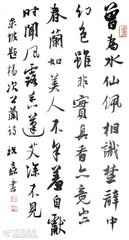 曾為水仙佩相識楚辭中
幻色雖非實真香亦竟空
春蘭如美人不采羞自獻
時聞風露香蓬艾深不見
題楊次公蘭詩 書